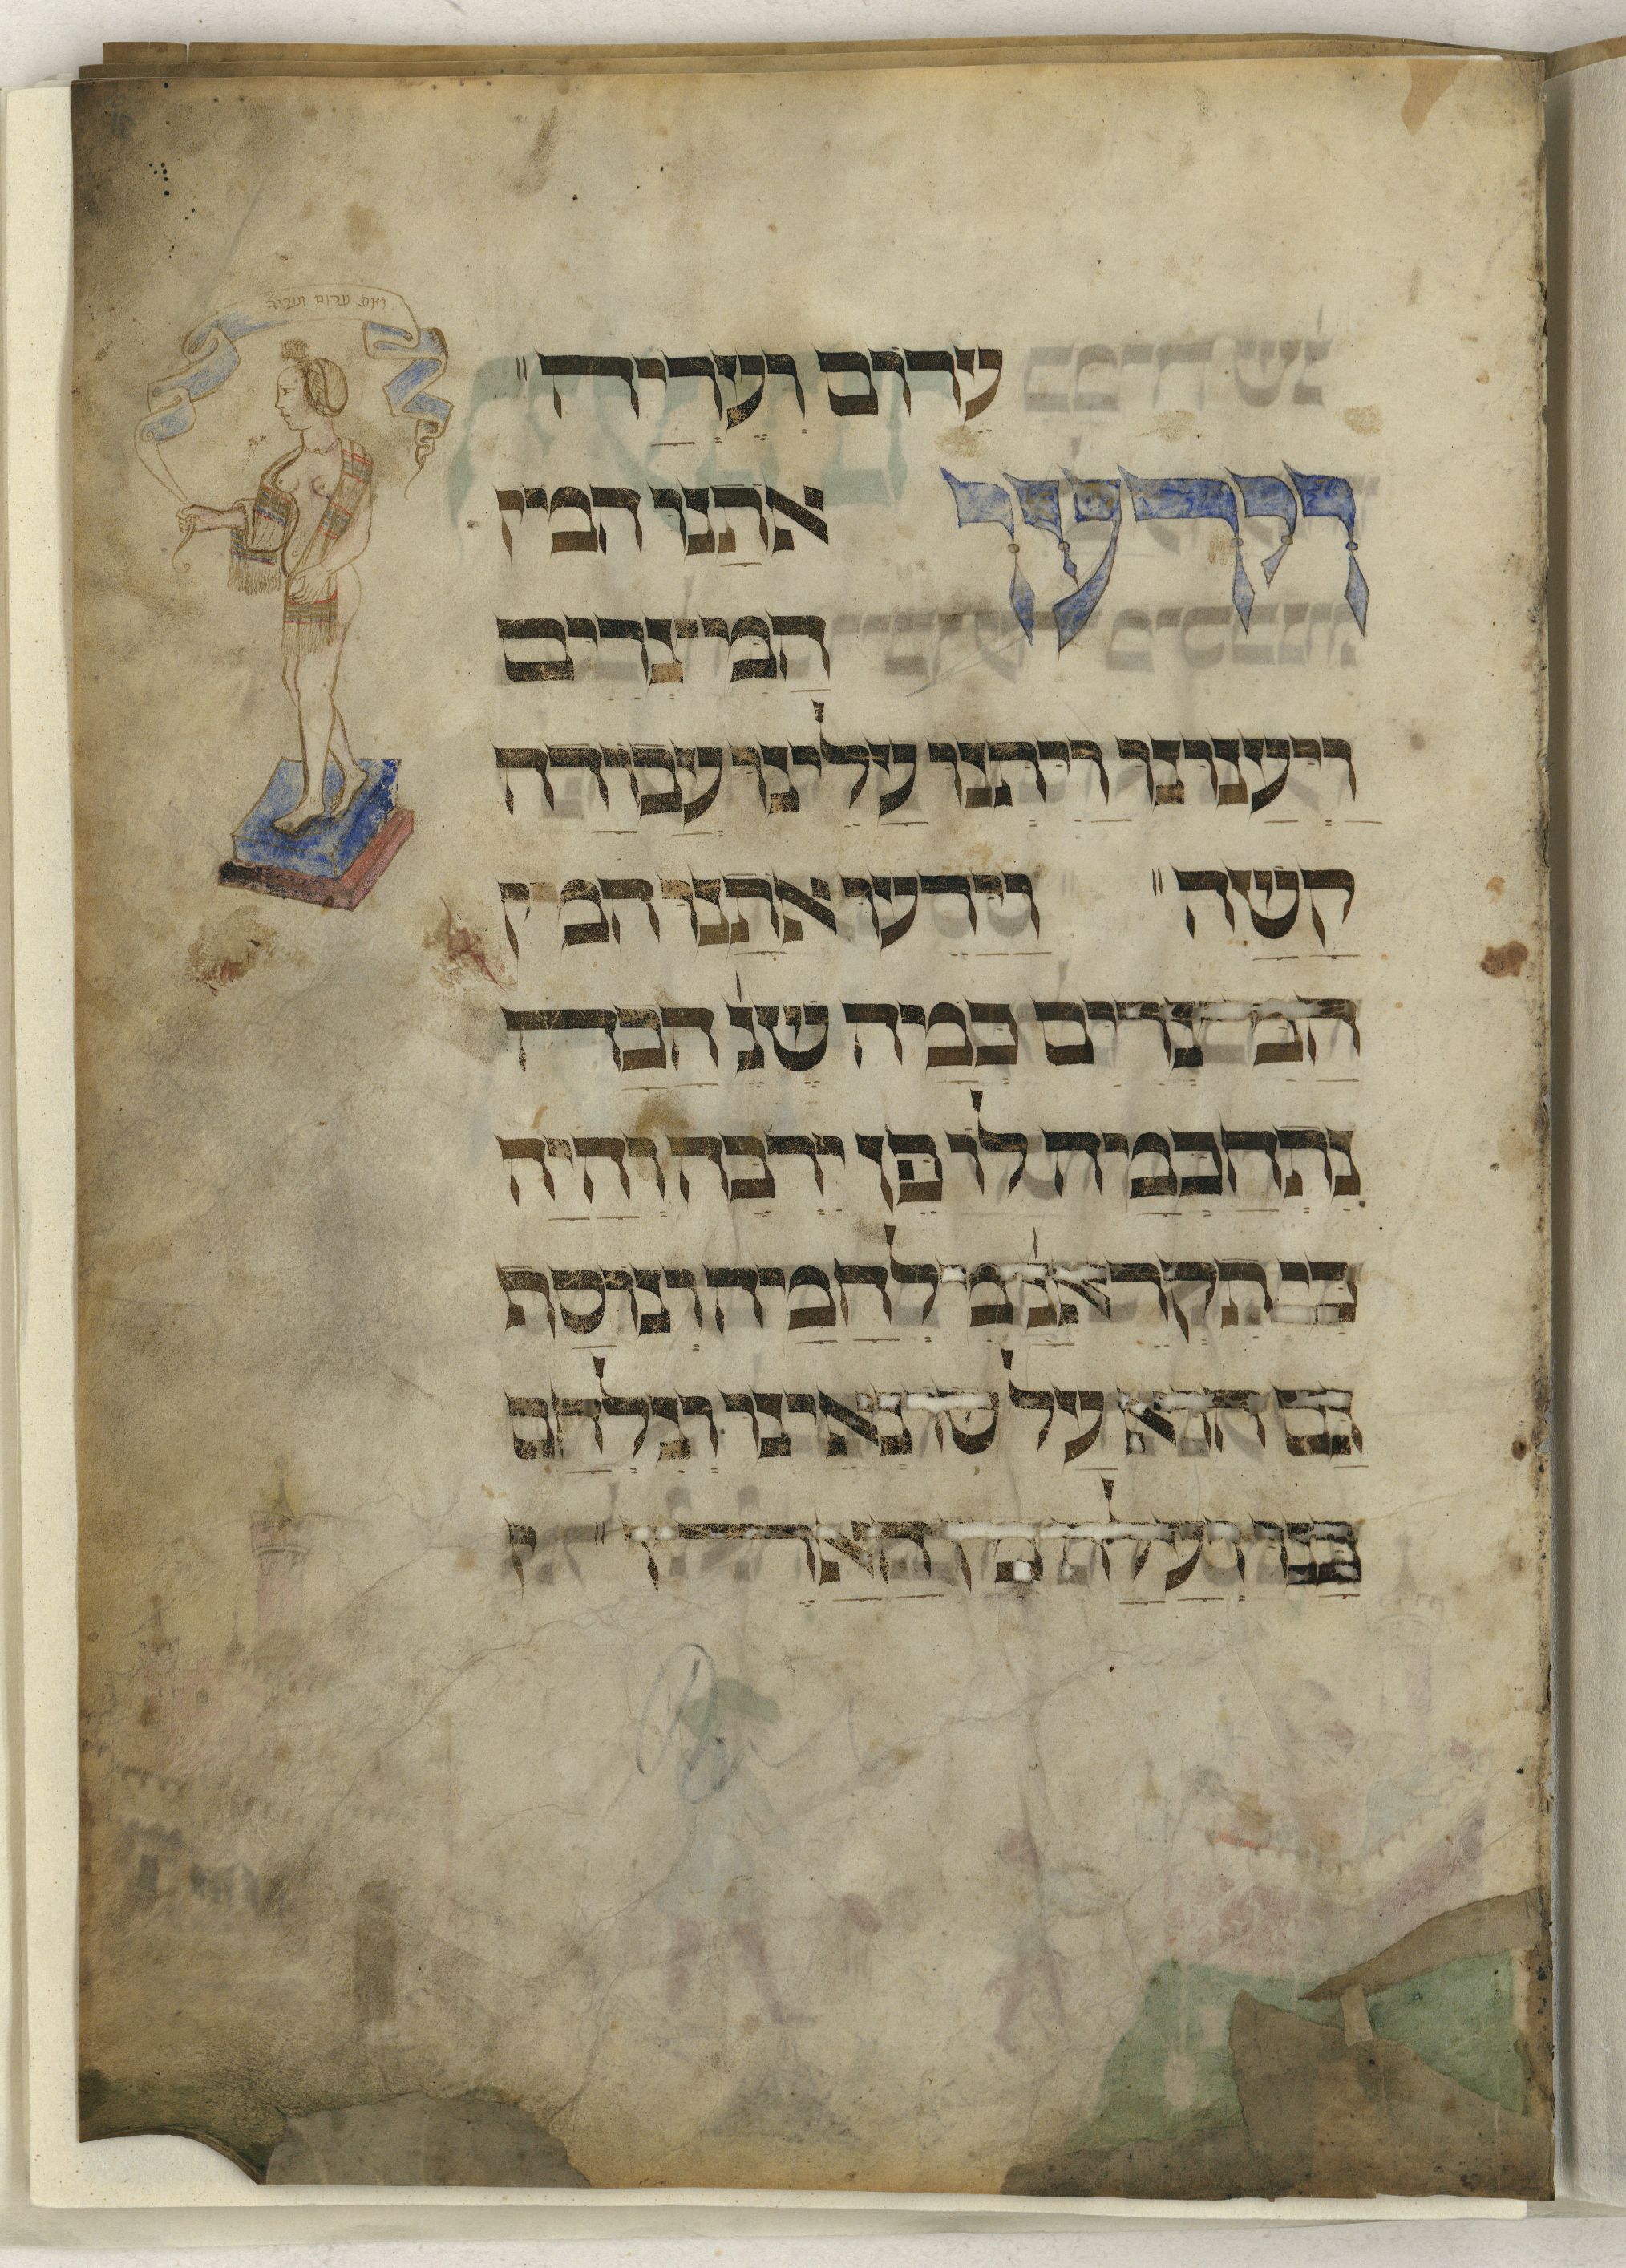 ואת ערום ועריה
עֵרוֹם וְעֶרְיָה״
וירעו אתָנוּ המיצ
הַמִּיצְרִיִּם
וַיְּעַנוּנוּ וַיִּתְּנוּ עָלֵינוּ עֲבוֹדָה
קָשָׁה״ וַיָּרֵעוּ אתָנוּ המיצ
הַמִּיצְרִיִּם כְּמָה שֶׁנֶּ הָבָה
נִתְחַכְּמָה לוֹ פֶּן יִרְבֶּה וְהָיָה
כִּי תִקְרֶאנָה מִלְחָמָה וְנוֹסַף
גַּם הוּא עַל שׂוֹנְאֵינוּ וְנִלְחַם
בָּנוּ וְעָלָה מִן הָאָרֶץ״